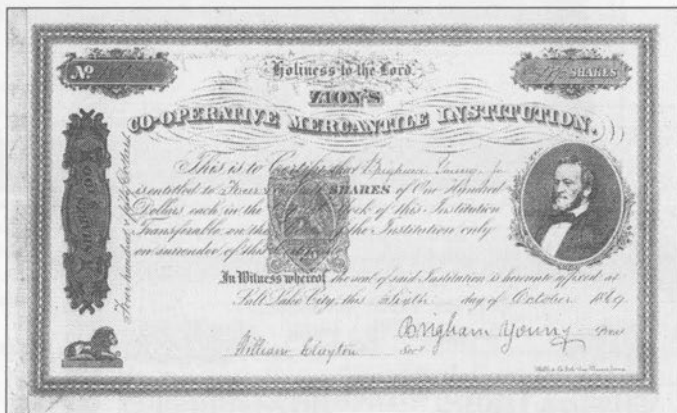 Nº
Holiness to the Lord
SHARES
ZION'S
CO-OPERATIVE MERCANTILE INSTITUTION.
This is to Certify that Brigham Young Jr
is entitled to Four SHARES of One Hundred
Dollars each in the Stock of this Institution
Transferable on the of the Institution only
on surrender of this
SHARES $100
Four hundred fifty Dollars
In Witness whereof, the seal of said Institution is hereunto affixed at
Salt Lake City, this day of October 1869
Brigham Young
William Clayton Sec.